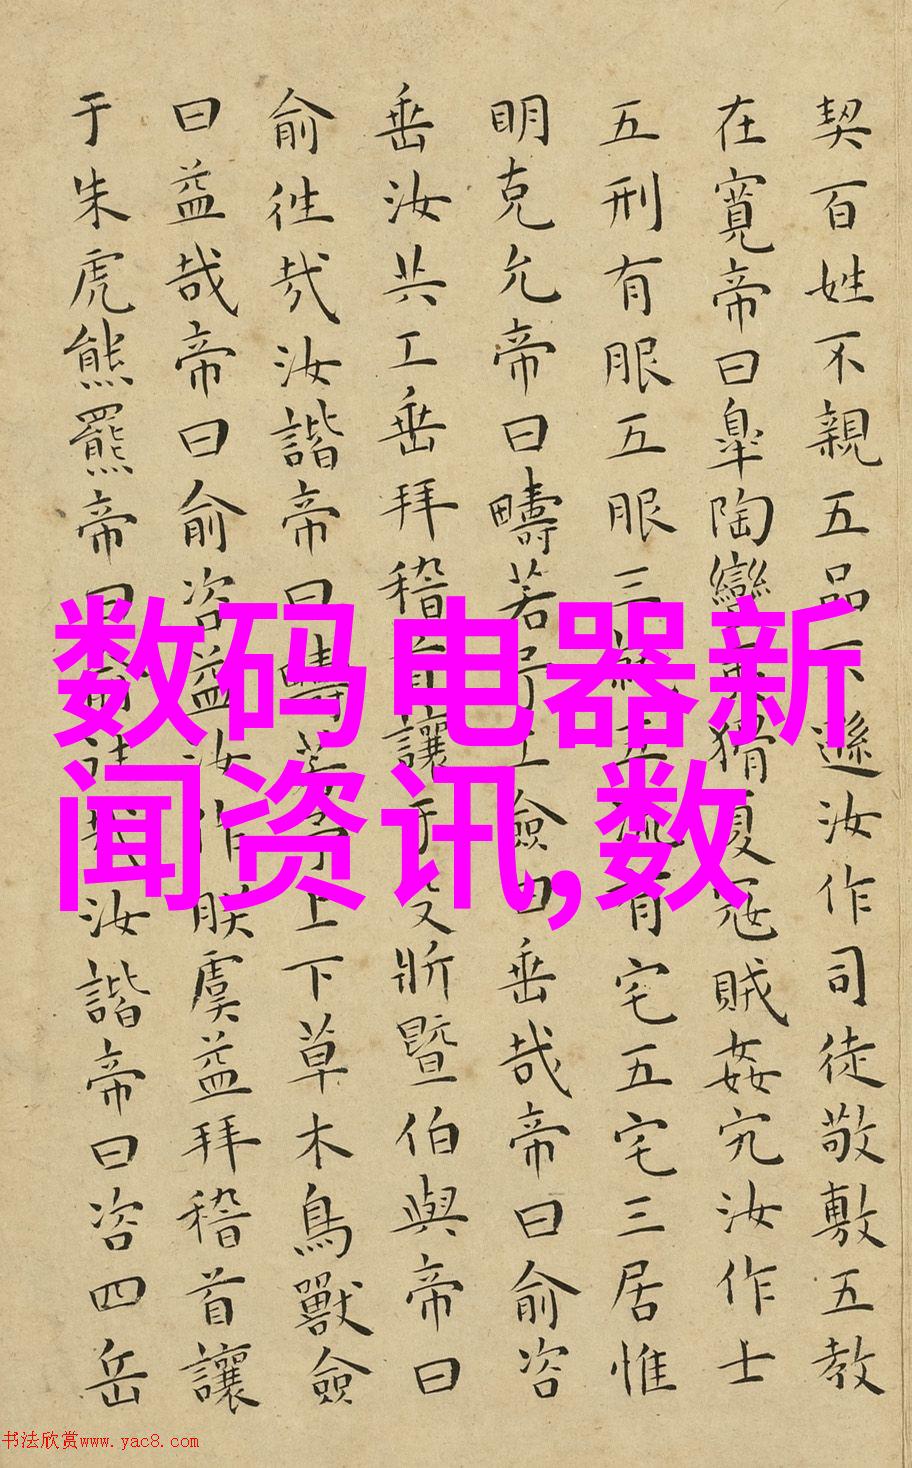 契百姓不親五品不遜汝作司徒敬敷五教
在寬帝曰皐陶蠻夷猾夏寇賊姦宄汝作士
五刑有服五服三就五流有宅五宅三居惟
明克允帝曰疇若予工僉曰垂哉帝曰俞咨
垂汝共工垂拜稽首讓于殳斨暨伯與帝曰
俞往哉汝諧帝曰疇若予上下草木鳥獸僉
曰益哉帝曰俞咨益汝作朕虞益拜稽首讓
于朱虎熊羆帝曰俞往哉汝諧帝曰咨四岳
数码电器新
闻资讯,数
书法欣赏www.yac8.com